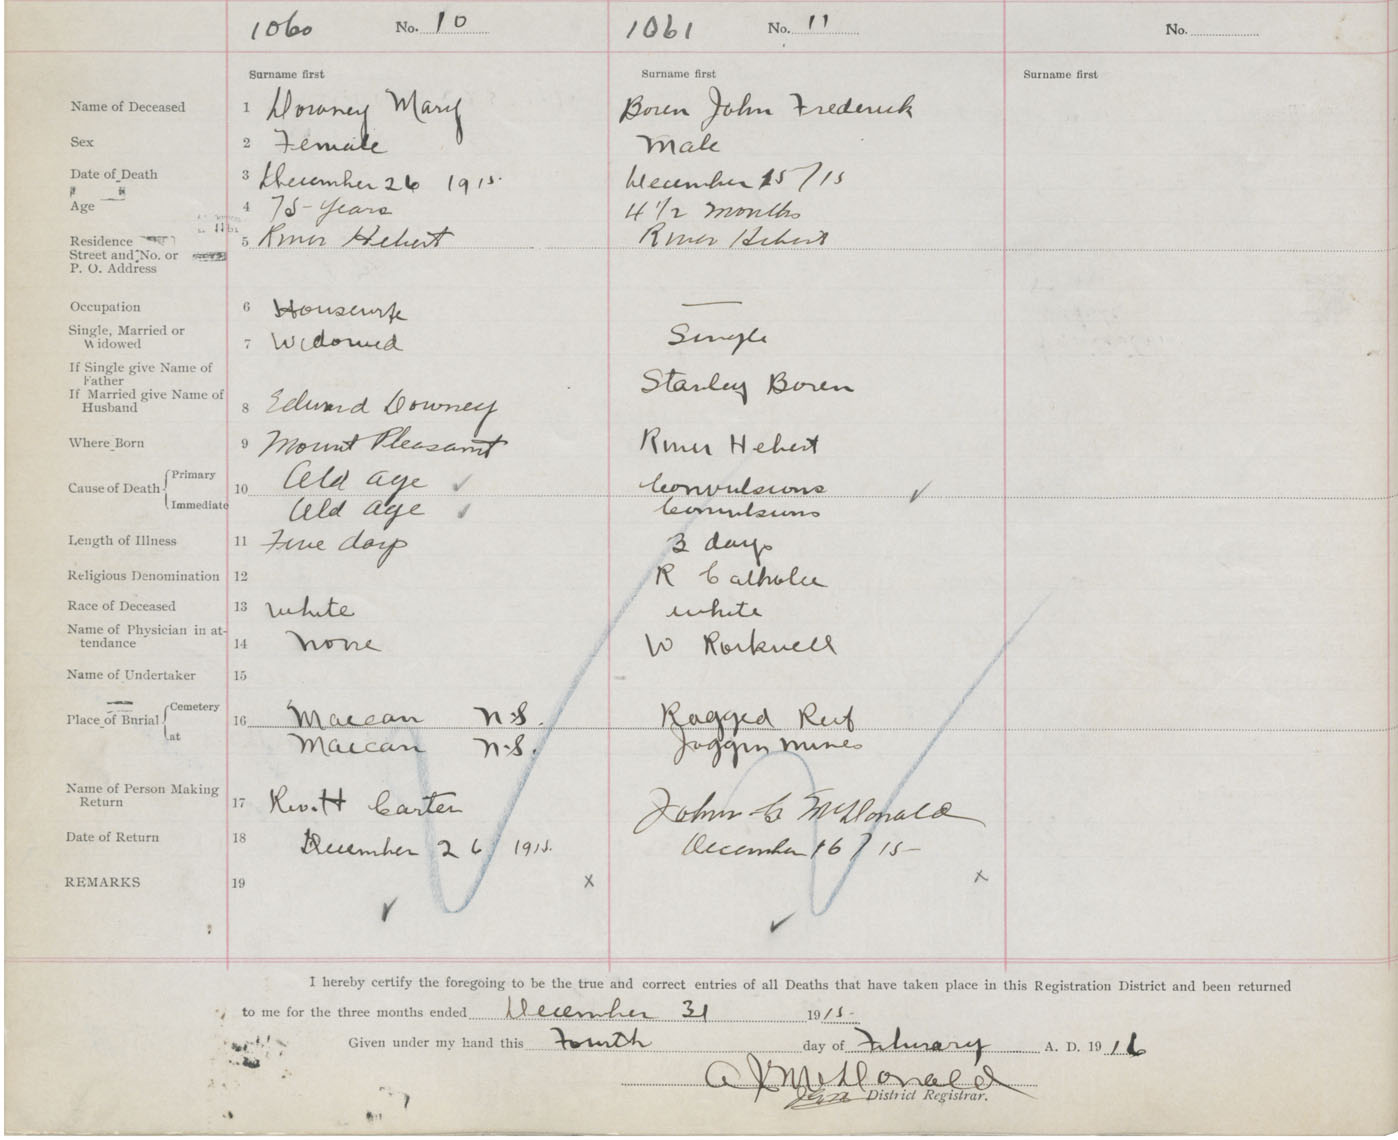 1060 No. 10 1061 No. 11 No.
Surname first Surname first Surname first
Name of Deceased 1 Downey Mary Boren John Frederick
Sex 2 Female Male
Date of Death 3 December 26 1915. December 15/15
Age 4 75 years 4 1/2 months
Residence 5 River Hebert River Hebert
Street and No. or
P. O. Address
Occupation 6 Housewife —
Single, Married or
Widowed 7 Widowed Single
If Single give Name of
Father Stanley Boren
If Married give Name of
Husband 8 Edward Downey
Where Born 9 Mount Pleasant River Hebert
Primary Old age Convulsions
Cause of Death 10
Immediate Old age Convulsions
Length of Illness 11 Five days 3 days
Religious Denomination 12 R Catholic
Race of Deceased 13 white white
Name of Physician in at-
tendance 14 none W Rockwell
Name of Undertaker 15
Cemetery Maccan N.S. Ragged Reef
Place of Burial 16
at Maccan N.S. Joggin mines
Name of Person Making
Return 17 Rev. H Carter John C McDonald
Date of Return 18 December 26 1915. December 16/15
REMARKS 19 x x
I hereby certify the foregoing to be the true and correct entries of all Deaths that have taken place in this Registration District and been returned
to me for the three months ended December 31 1915
Given under my hand this Fourth day of February A. D. 1916
McDonald
District Registrar.